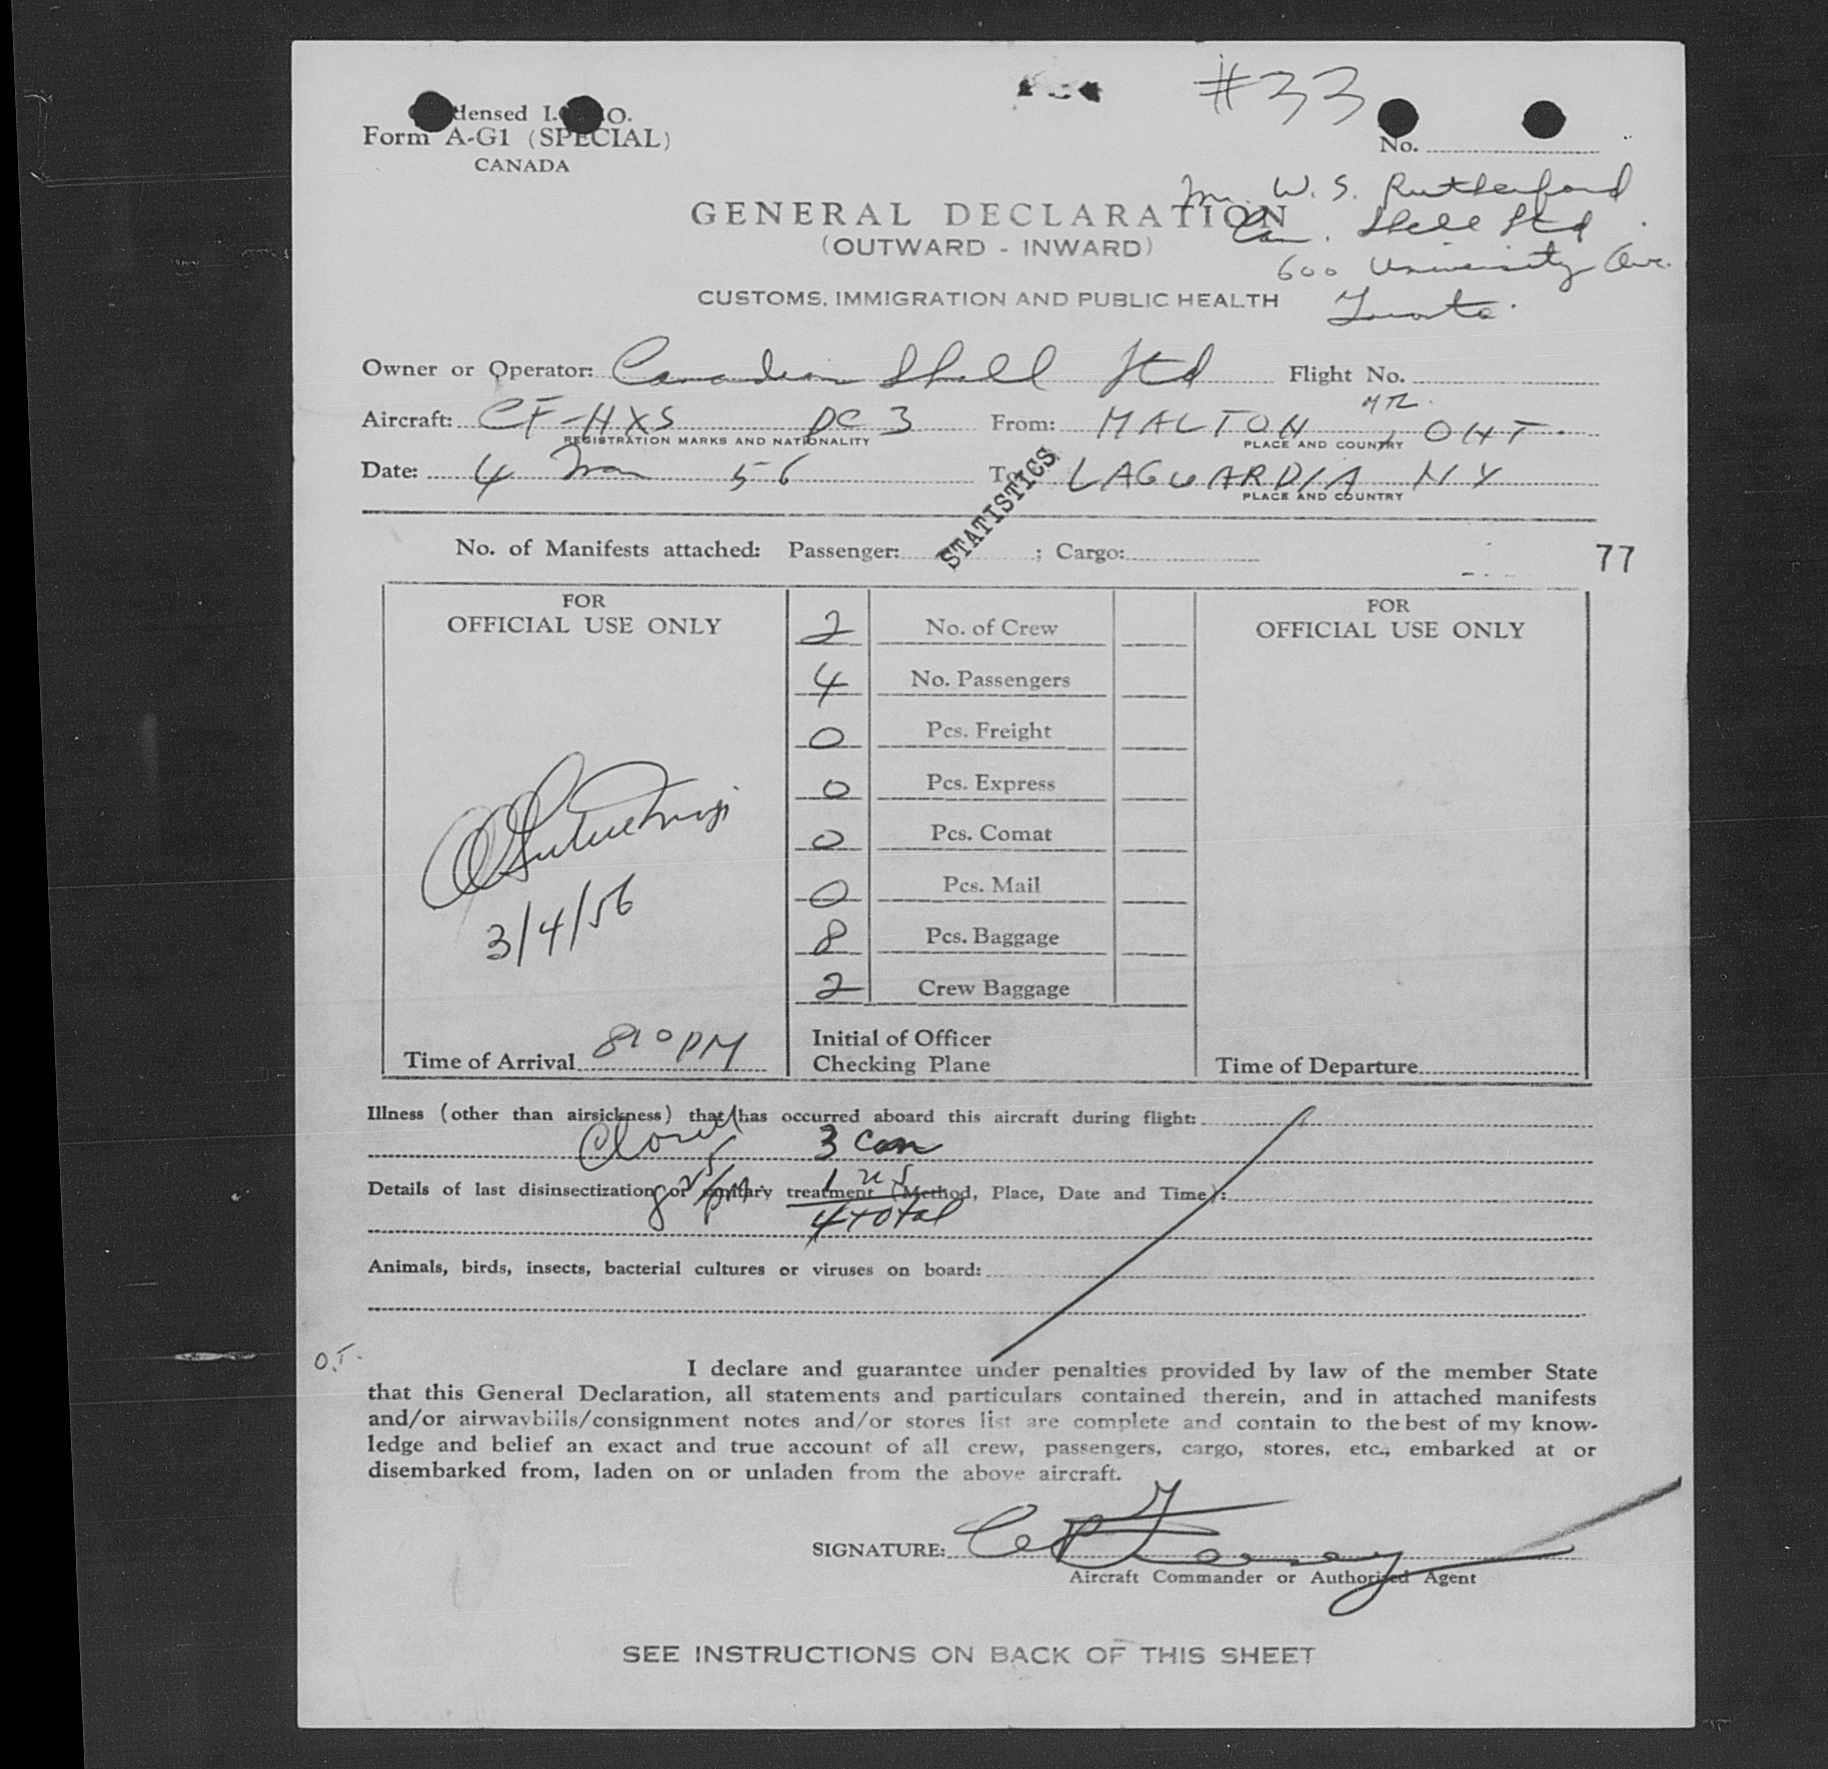 #33
densed I. O.
Form A-G1 (SPECIAL)
CANADA
No.
Mr. W. S. Rutherford
Can. Shell Ltd
600 University Ave.
Toronto.
GENERAL DECLARATION
(OUTWARD - INWARD)
CUSTOMS, IMMIGRATION AND PUBLIC HEALTH
Owner or Operator: Canadian Shell Ltd Flight No.
Aircraft: CF-HXS DC 3 From: MALTON, ONT.
REGISTRATION MARKS AND NATIONALITY PLACE AND COUNTRY
Date: 4 Mar 56 To: LAGUARDIA NY
PLACE AND COUNTRY
STATISTICS
No. of Manifests attached: Passenger: ; Cargo:
77
FOR
OFFICIAL USE ONLY
2 No. of Crew
4 No. Passengers
0 Pcs. Freight
0 Pcs. Express
0 Pcs. Comat
0 Pcs. Mail
8 Pcs. Baggage
2 Crew Baggage
3/4/56
Time of Arrival 810 PM
Initial of Officer
Checking Plane
FOR
OFFICIAL USE ONLY
Time of Departure
Illness (other than airsickness) that has occurred aboard this aircraft during flight:
3 Can
Details of last disinsectization or sanitary treatment (Method, Place, Date and Time):
1 US
4 total
Animals, birds, insects, bacterial cultures or viruses on board:
O.T.
I declare and guarantee under penalties provided by law of the member State
that this General Declaration, all statements and particulars contained therein, and in attached manifests
and/or airwaybills/consignment notes and/or stores list are complete and contain to the best of my know-
ledge and belief an exact and true account of all crew, passengers, cargo, stores, etc., embarked at or
disembarked from, laden on or unladen from the above aircraft.
SIGNATURE:
Aircraft Commander or Authorized Agent
SEE INSTRUCTIONS ON BACK OF THIS SHEET